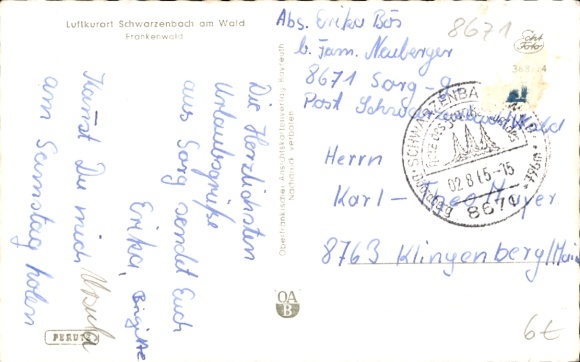 Luftkurort Schwarzenbach am Wald
Frankenwald
Die Herzlichsten
Urlaubsgrüße
aus Sorg sendet Euch
Erika, Brigitte
Ursula
Kannst Du mich
am Samstag holen
PERUTZ
Oberfränkischer Ansichtskartenverlag Bayreuth
Nachdruck verboten
OA
B
Abs. Erika Bös
b. Fam. Neuberger
8671 Sorg - 9
Post Schwarzenbach/Wald
8671
Echt
Foto
SCHWARZENBACH
02.8.65-15
8671
Herrn
Karl-Theo Mayer
8763 Klingenberg/Main
6€